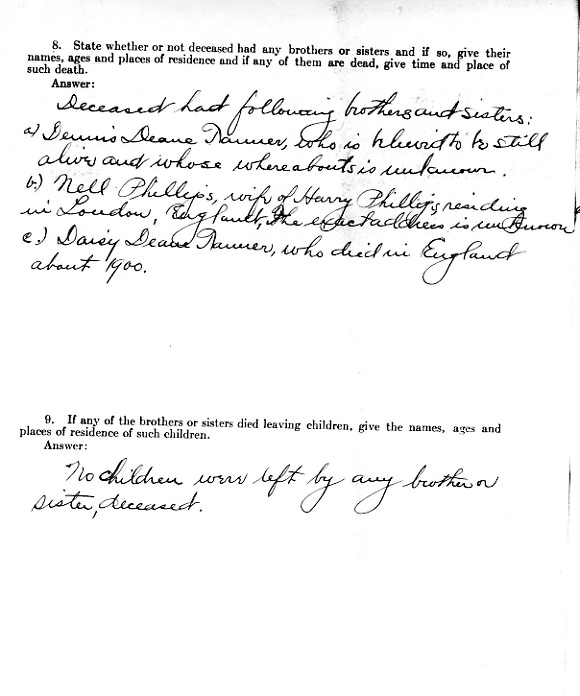 8. State whether or not deceased had any brothers or sisters and if so, give their
names, ages and places of residence and if any of them are dead, give time and place of
such death.
Answer:
Deceased had following brothers and sisters:
a) Dennis Deane Tanner, who is believed to be still
alive and whose whereabouts is unknown.
b.) Nell Phillips, wife of Harry Phillips residing
in London, England, The exact address is unknown
c.) Daisy Deane Tanner, who died in England
about 1900.
9. If any of the brothers or sisters died leaving children, give the names, ages and
places of residence of such children.
Answer:
No children were left by any brother or
sister, deceased.